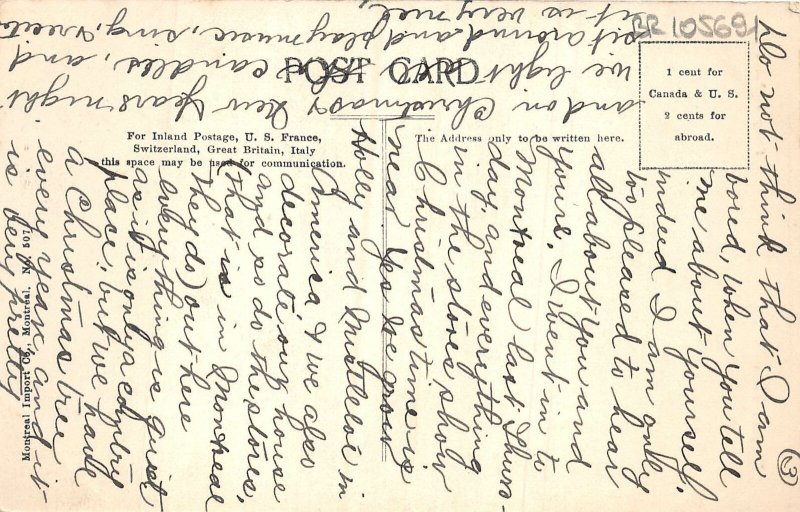 ③
Do not think that I am
bored, when you tell
me about yourself.
indeed I am only
too pleased to hear
all about you and
yours. I went in to
Montreal last Thurs-
day, and everything
in the stores show
Christmas time is
near. Yes we grow
Holly and Mistletoe in
America & we also
decorate our house
and so do the stores,
(that is in Montreal
they do) out here
everything is quiet
as it is only a country
place, but we have
a Christmas tree
every year and it
is very pretty
and on Christmas & New Years night
we light the candles, and
sit around and play music, sing, & eats
it is very nice,
BR 105691
POST CARD
1 cent for
Canada & U. S.
2 cents for
abroad.
For Inland Postage, U. S. France,
Switzerland, Great Britain, Italy
this space may be used for communication.
The Address only to be written here.
Montreal Import Co., Montreal, No. 507